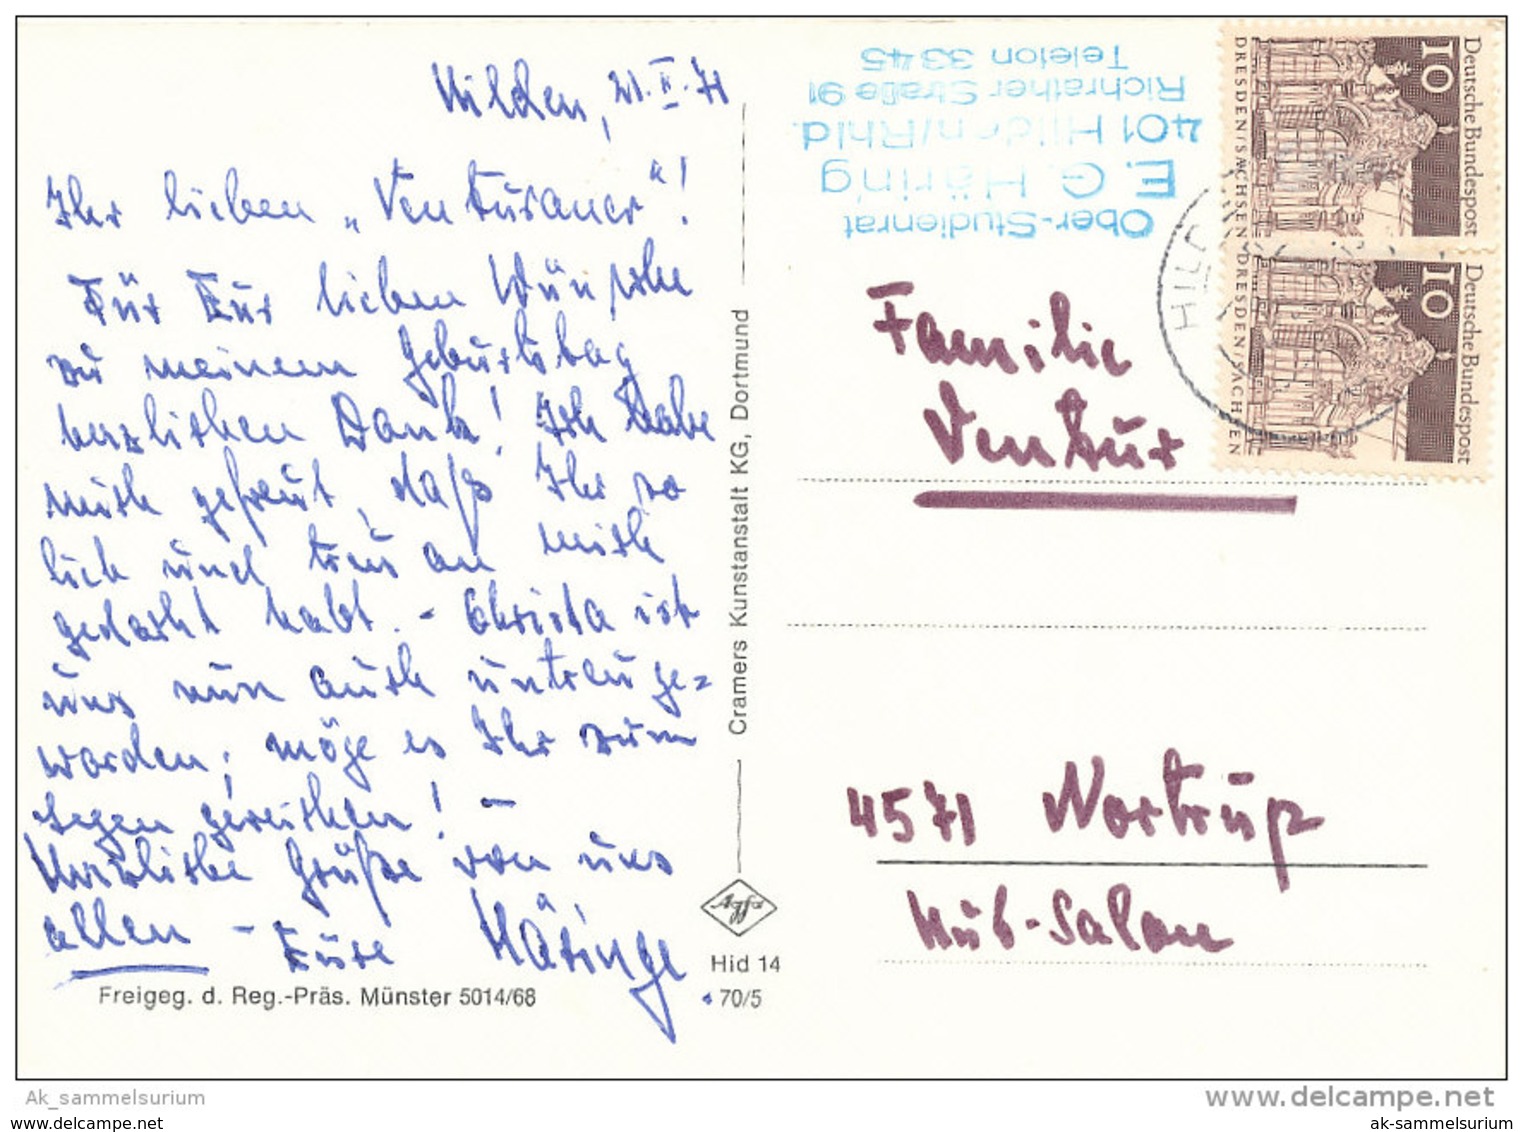 Hilden, 21.II.71
Ihr lieben „Venturaner"!
Für Eure lieben Wünsche
zu meinem Geburtstag
herzlichen Dank! Ich habe
mich gefreut, daß Ihr so
lieb und treu an mich
gedacht habt. - Christa ist
uns nun auch untreu ge=
worden; möge es Ihr zum
Segen gereichen! -
Herzliche Grüße von uns
allen - Eure Häringe
Freigeg. d. Reg.-Präs. Münster 5014/68
Cramers Kunstanstalt KG, Dortmund
Agfa
Hid 14
70/5
Ober-Studienrat
E. G. Häring
401 Hilden/Rhld.
Richrather Straße 91
Telefon 33 45
Deutsche Bundespost
10
DRESDEN/SACHSEN
Deutsche Bundespost
10
DRESDEN/SACHSEN
HILD
Familie
Ventur
4571 Nortrup
Hub-Salon
Ak_sammelsurium
www.delcampe.net
ak-sammelsurium
ak-sammelsurium